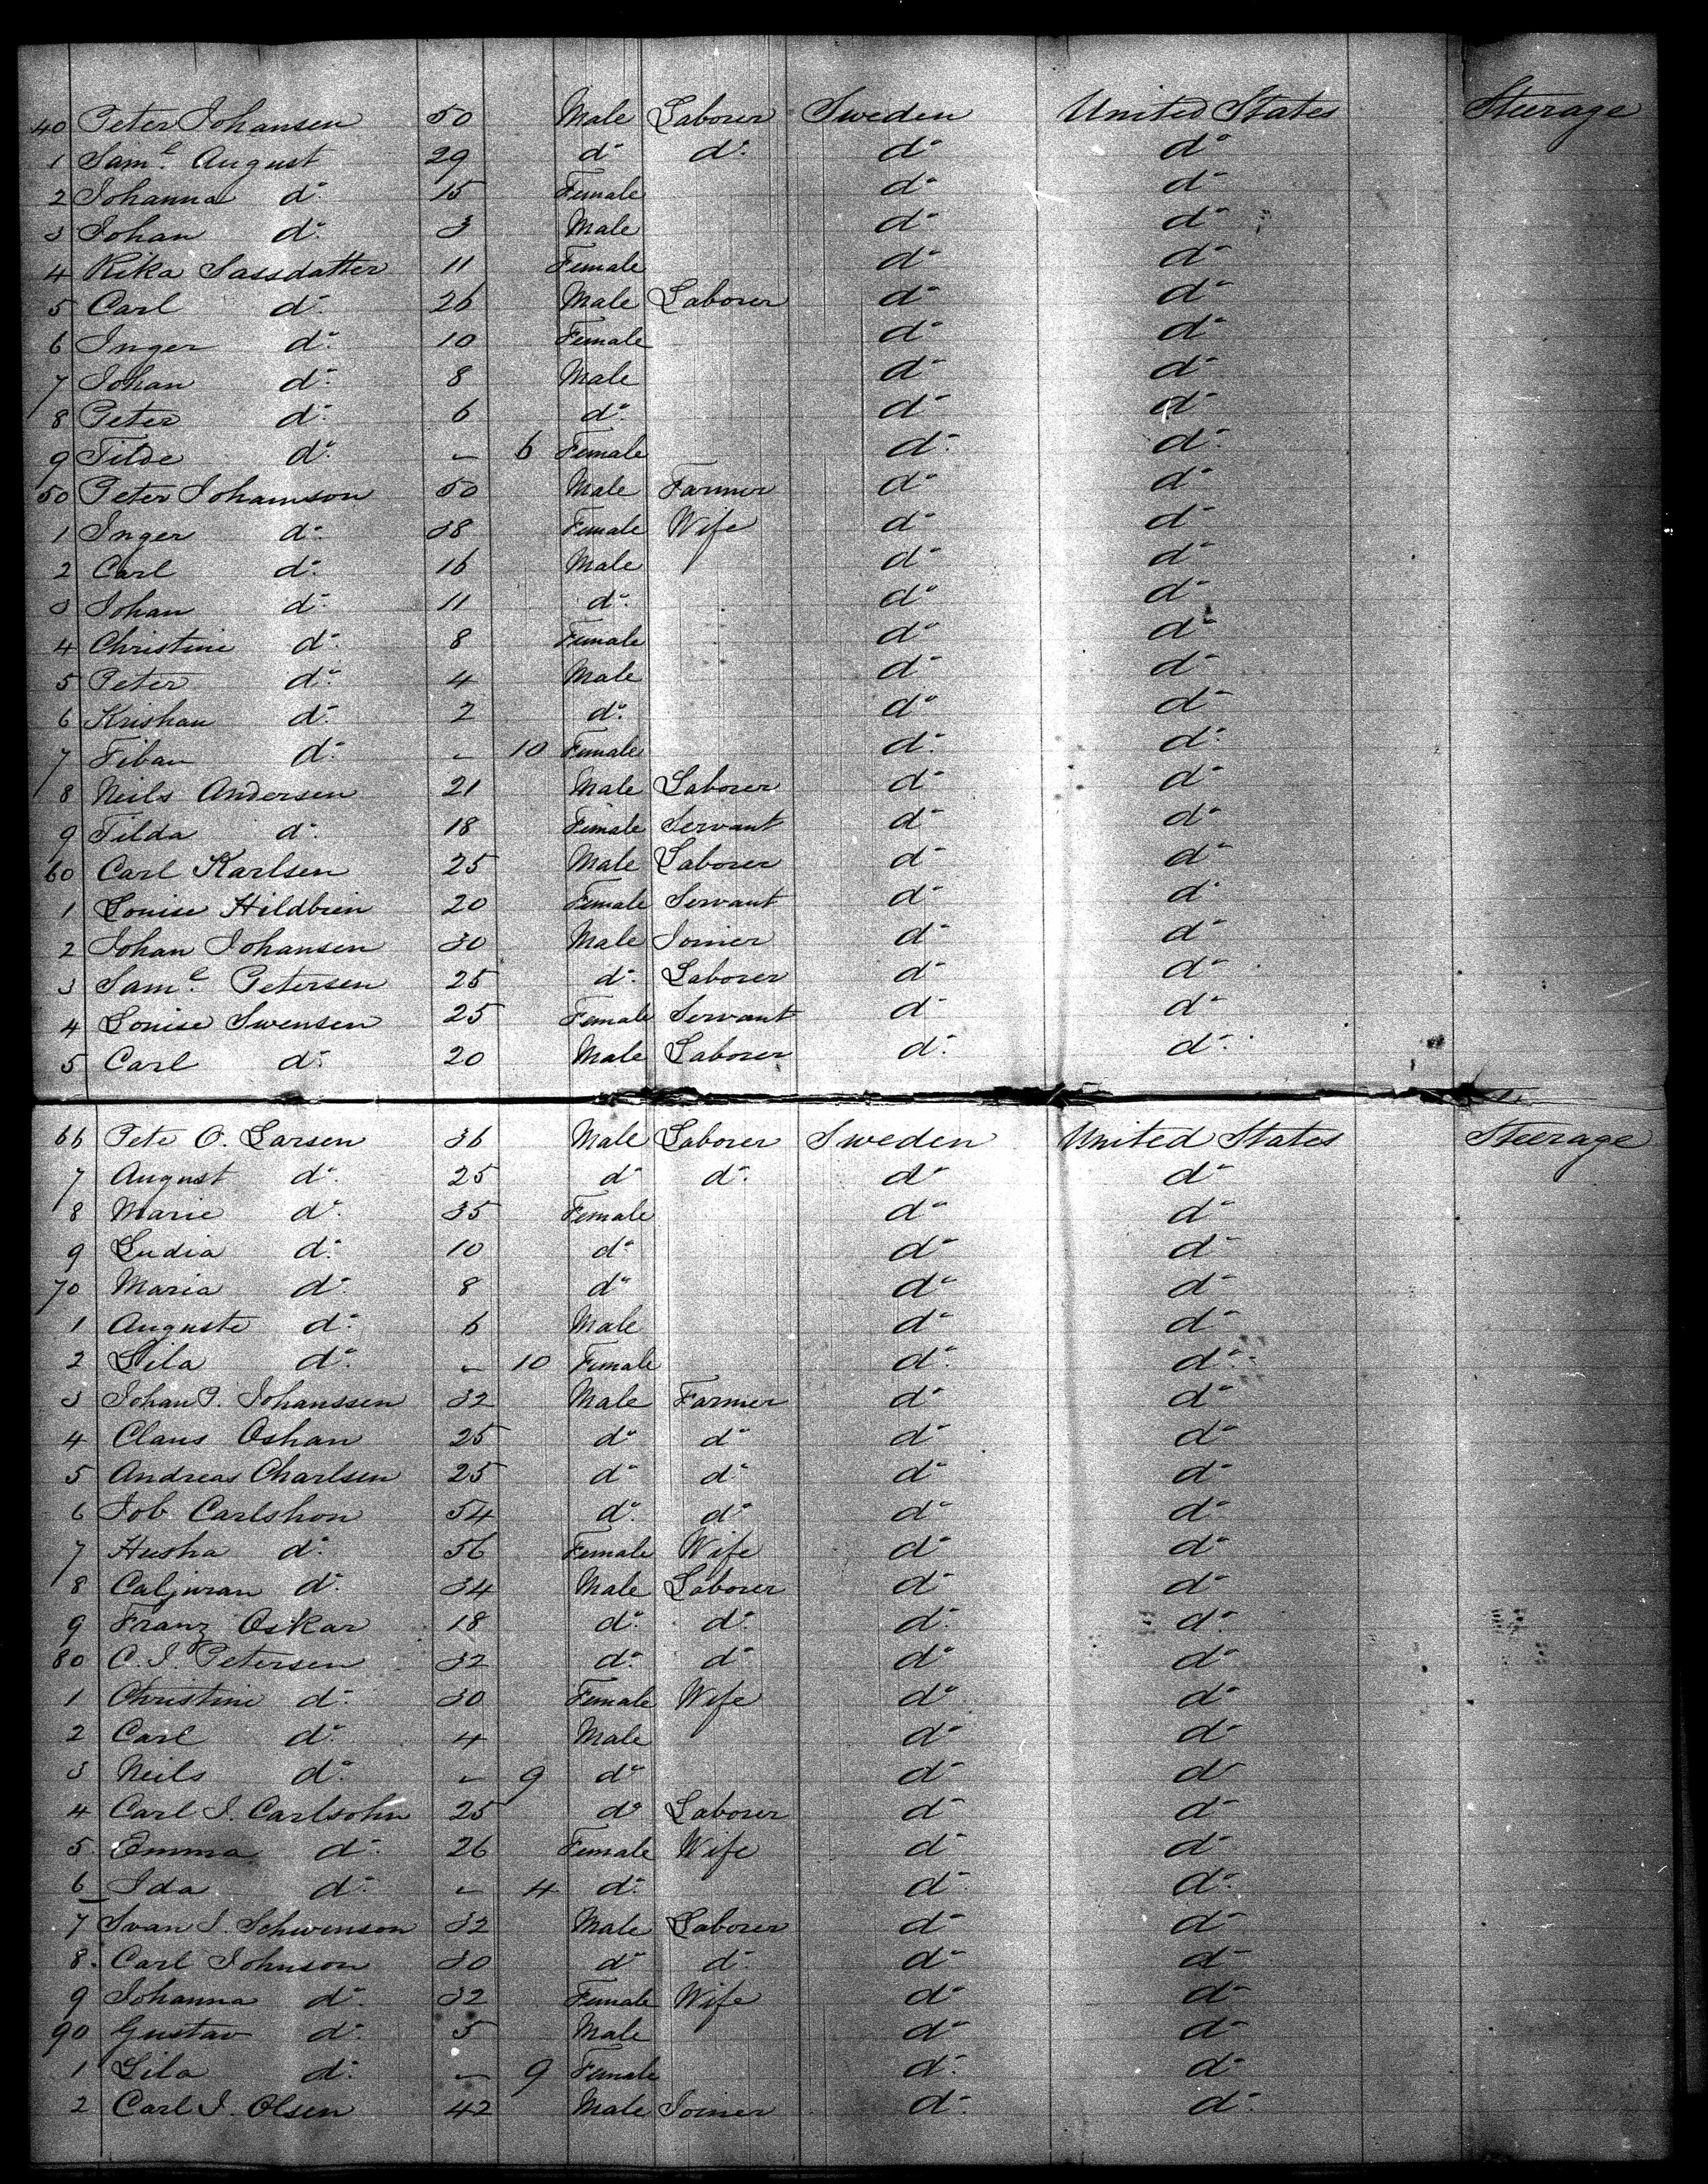 40 Peter Johansen 50 Male Laborer Sweden United States Steerage
1 Sam.l August 29 do do do do
2 Johanna do 15 Female do do
3 Johan do 3 Male do do
4 Rika Sassdatter 11 Female do do
5 Carl do 26 Male Laborer do do
6 Inger do 10 Female do do
7 Johan do 8 Male do do
8 Peter do 6 do do do
9 Tilde do – 6 Female do do
50 Peter Johannson 50 Male Farmer do do
1 Inger do 38 Female Wife do do
2 Carl do 16 Male do do
3 Johan do 11 do do do
4 Christine do 8 Female do do
5 Peter do 4 Male do do
6 Krishan do 2 do do do
7 Fiban do – 10 Female do do
8 Neils Andersen 21 Male Laborer do do
9 Tilda do 18 Female Servant do do
60 Carl Karlsen 25 Male Laborer do do
1 Louise Hildbrien 20 Female Servant do do
2 Johan Johansen 30 Male Joiner do do
3 Sam.l Petersen 25 do Laborer do do
4 Louise Swensen 25 Female Servant do do
5 Carl do 20 Male Laborer do do
66 Pete O. Larsen 36 Male Laborer Sweden United States Steerage
7 August do 25 do do do do
8 Marie do 35 Female do do
9 Ludia do 10 do do do
70 Maria do 8 do do do
1 Auguste do 6 Male do do
2 Lila do – 10 Female do do
3 Johan P. Johanssen 32 Male Farmer do do
4 Claus Oshan 25 do do do do
5 Andreas Charlsen 25 do do do do
6 Job Carlshon 54 do do do do
7 Husha do 56 Female Wife do do
8 Caljuran do 34 Male Laborer do do
9 Franz Oskar 18 do do do do
80 C. J. Petersen 32 do do do do
1 Christine do 30 Female Wife do do
2 Carl do 4 Male do do
3 Neils do – 9 do do do
4 Carl J. Carlsohn 25 do Laborer do do
5 Emma do 26 Female Wife do do
6 Ida do – 4 do do do
7 Svan J. Schwenson 32 Male Laborer do do
8 Carl Johnson 30 do do do do
9 Johanna do 32 Female Wife do do
90 Gustav do 5 Male do do
1 Lila do – 9 Female do do
2 Carl J. Olsen 42 Male Joiner do do